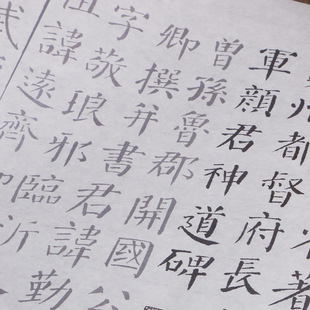 著
州都督府長
軍顏君神道碑
曾孫魯郡開國公
卿撰并書君諱勤
字敬琅邪臨沂
諱遠齊
武